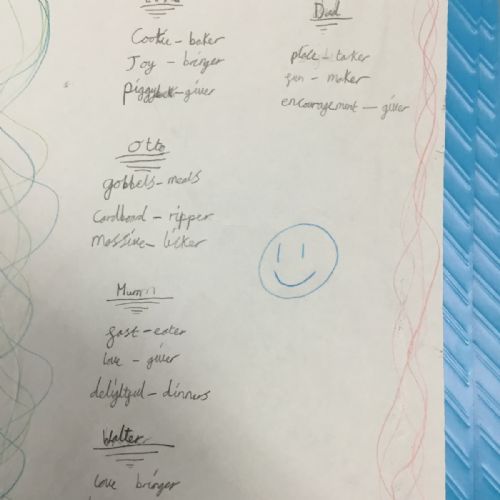 Cookie - baker
Joy - bringer
piggyback - giver
Otto
gobbels - meals
Cardboard - ripper
massive - licker
Mum
fast - eater
love - giver
delightful - dinners
Walter
love bringer
Dad
place - taker
fun - maker
encouragement - giver